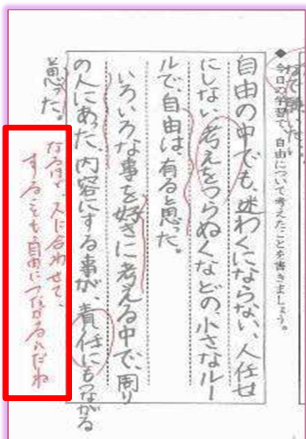 ◆今日の学習で、自由について考えたことを書きましょう。
自由の中でも、迷わくにならない、人任せ
にしない、考えをつらぬくなどの、小さなルー
ルで、自由は、有ると思った。
いろいろな事を好きに考える中で、周り
の人にあた、内容にする事が、責任にもつながる
と思った。
なるほど、人に合わせて、
することも、自由につながるんだね